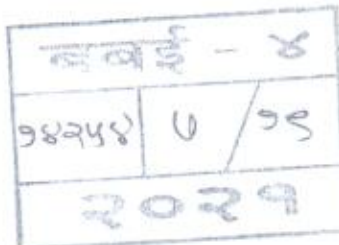 बबई - ४
१४२५४ ७ / १९
२०२१